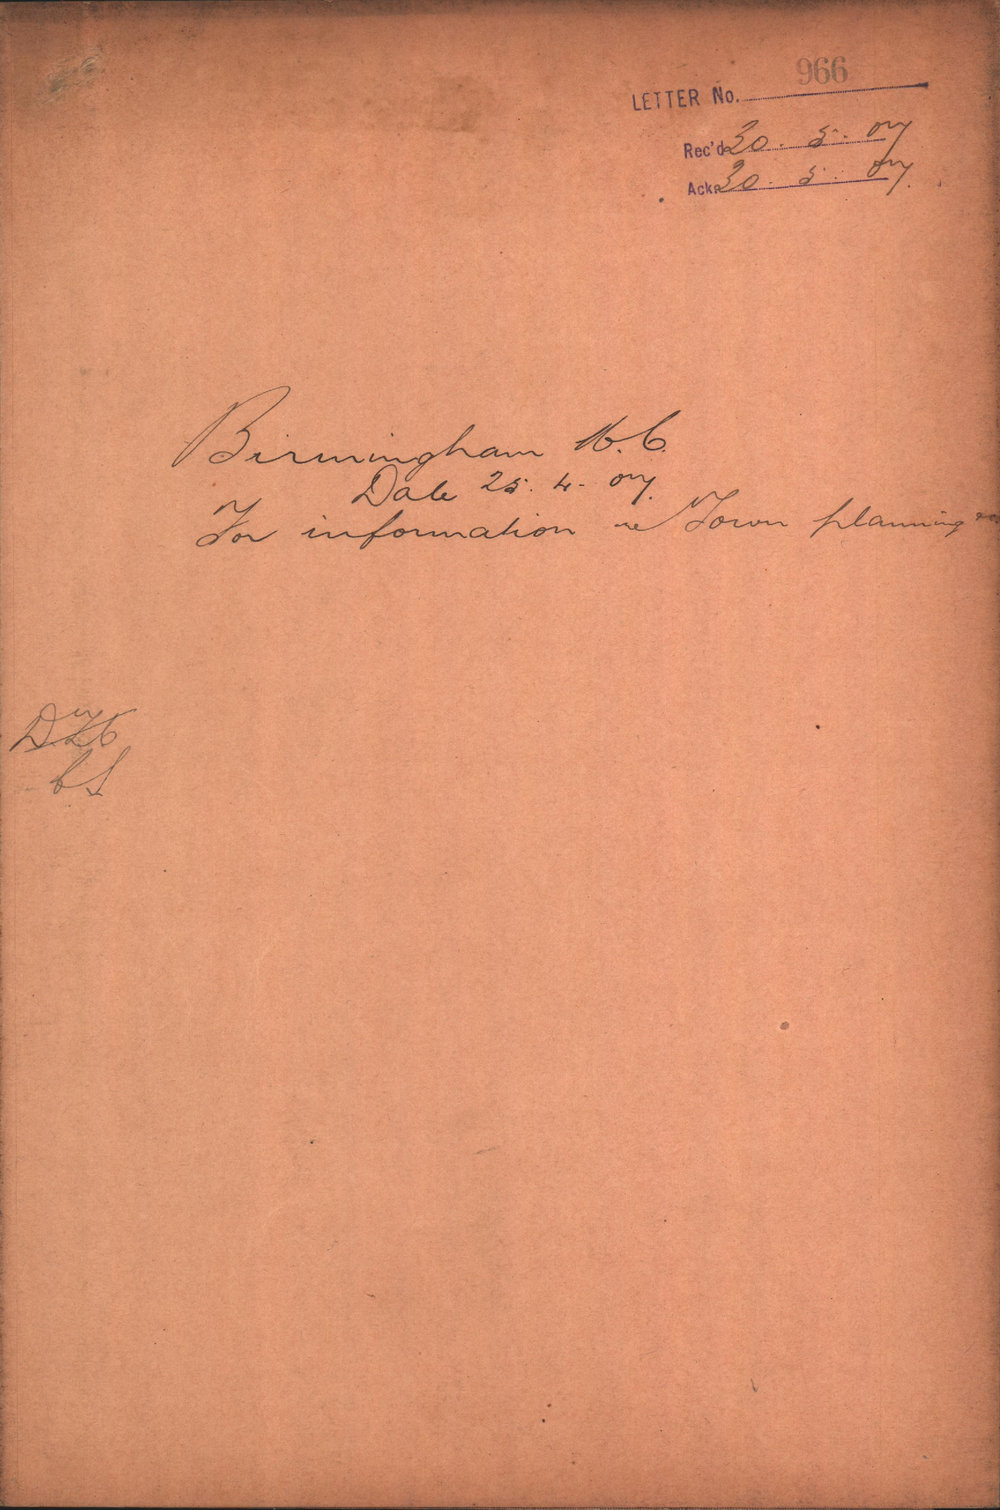 966
LETTER No.
Rec'd 30. 5. 07
Ackd 30. 5. 07.
Birmingham
Date 25. 4. 07.
For information re Town planning &c